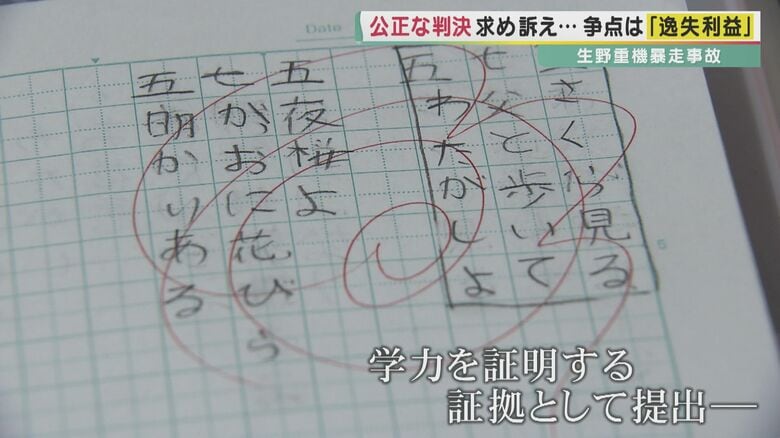 公正な判決 求め訴え… 争点は「逸失利益」
生野重機暴走事故
Date
さくら見る
七父と歩いて
五わたがしよ
五夜桜よ
七かおに花びら
五明かりある
5
学力を証明する
証拠として提出―